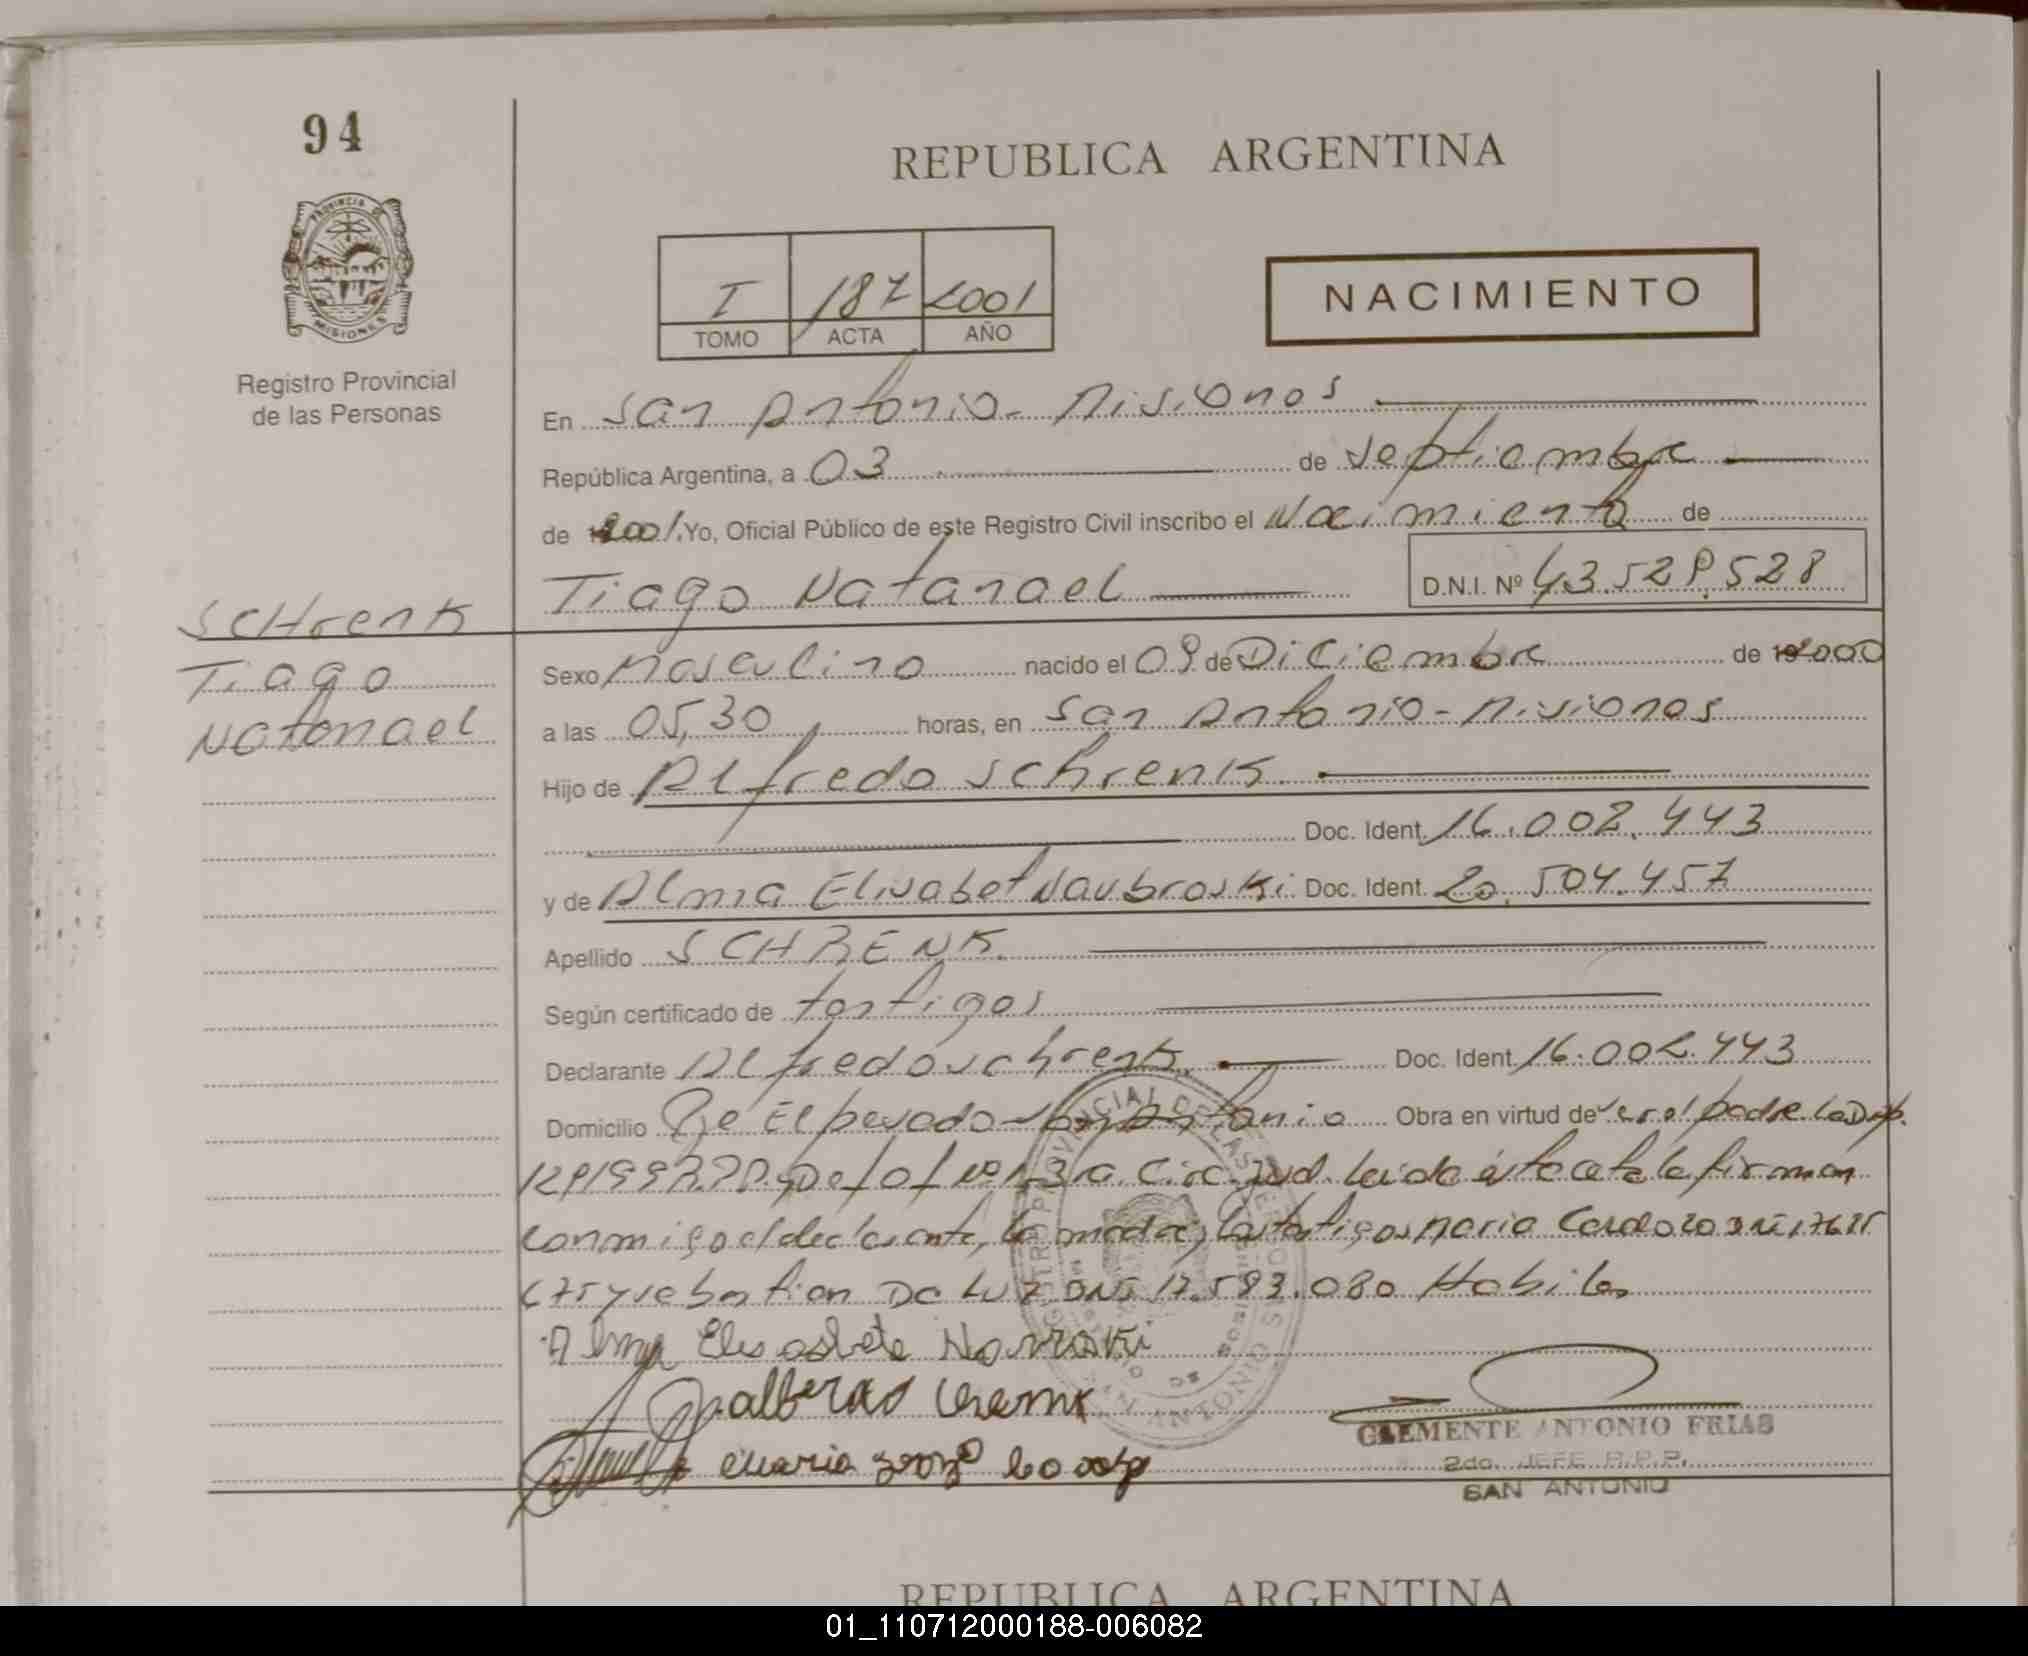 94
REPUBLICA ARGENTINA
PROVINCIA DE
MISIONES
I 187 2001
TOMO ACTA AÑO
NACIMIENTO
Registro Provincial
de las Personas
En San Antonio - Misiones
República Argentina, a 03 de Septiembre
de 2001. Yo, Oficial Público de este Registro Civil inscribo el Nacimiento de
Tiago Natanael D.N.I. Nº 43.528.528
SCHrenk
Tiago
Natanael
Sexo Masculino nacido el 09 de Diciembre de 2000
a las 05,30 horas, en San Antonio - Misiones
Hijo de Alfredo Schrenk
Doc. Ident. 16.002.443
y de Alma Elisabet Naubroski Doc. Ident. 20.504.457
Apellido SCHRENK
Según certificado de testigos
Declarante Alfredo Schrenk Doc. Ident. 16.002.443
Domicilio Pje El pesado - San Antonio Obra en virtud de ser el padre La Disp.
Def Of Nº 1 3ra Circ. Jud. Leida esta acta la firman
conmigo el declarante, la madre y los testigos Maria Cardozo DNI 17625
675 y Sebastian De Luz DNI 17.593.080 Habiles
Alma Elisabete
Maria
CLEMENTE ANTONIO FRIAS
2do. JEFE R.P.P.
SAN ANTONIO
REPUBLICA ARGENTINA
01_110712000188-006082